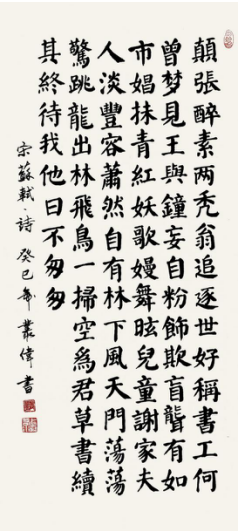 顛張醉素兩禿翁追逐世好稱書工何
曾梦見王與鐘妄自粉飾欺盲聾有如
市娼抹青紅妖歌嫚舞眩兒童謝家夫
人淡豐容蕭然自有林下風天門蕩蕩
驚跳龍出林飛鳥一掃空為君草書續
其終待我他日不匆匆
宋蘇軾·詩 癸巳年 叢偉書